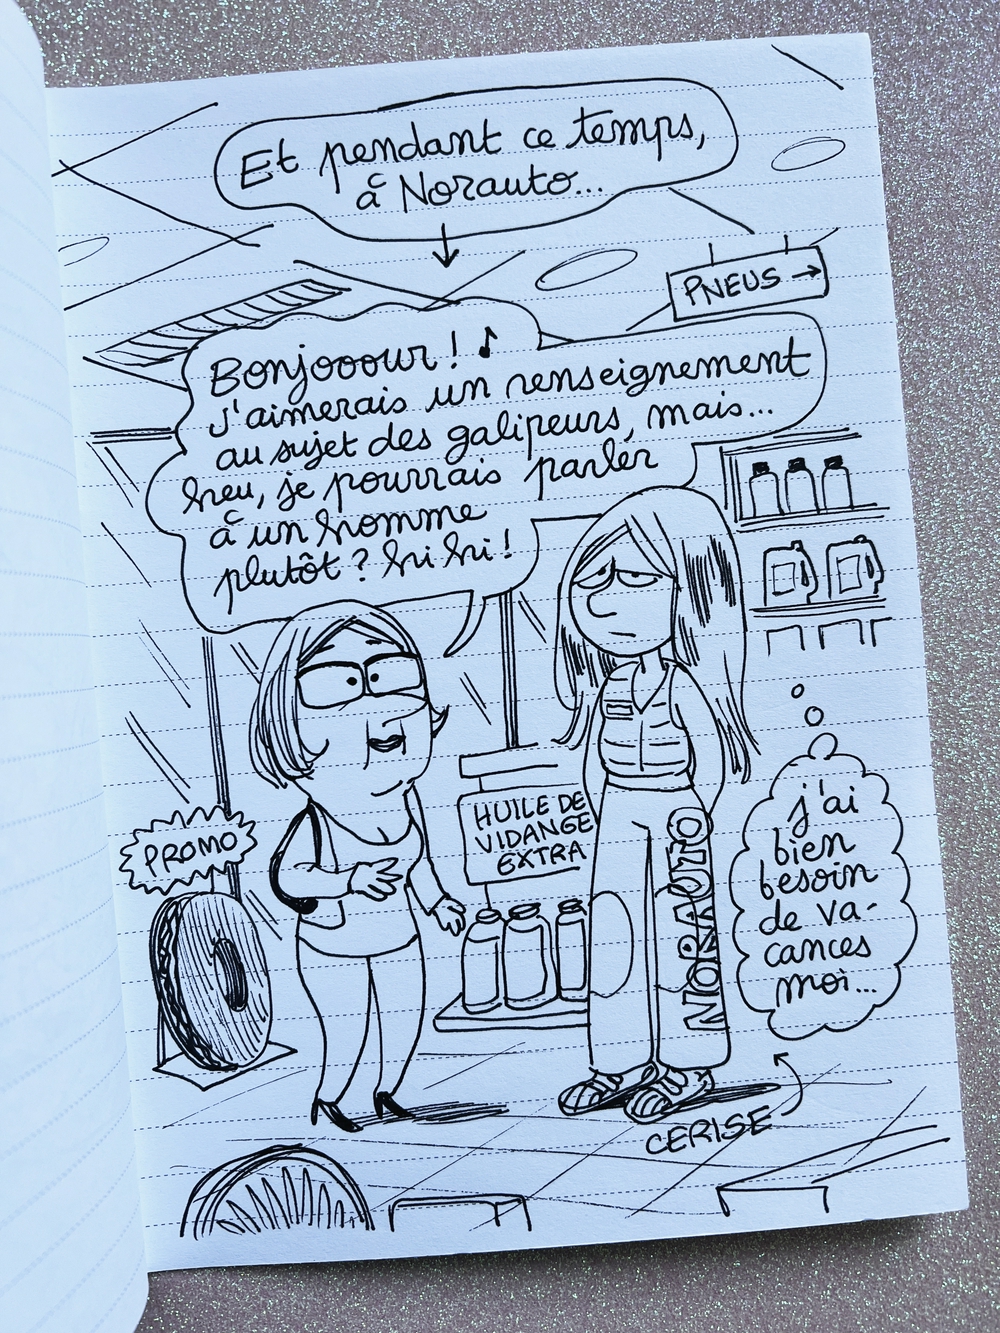 Et pendant ce temps,
à Norauto...
PNEUS →
Bonjooour ! ♪
J'aimerais un renseignement
au sujet des galipeurs, mais...
heu, je pourrais parler
à un homme
plutôt ? hi hi !
PROMO
HUILE DE
VIDANGE
EXTRA
NORAUTO
j'ai
bien
besoin
de va-
cances
moi...
CERISE